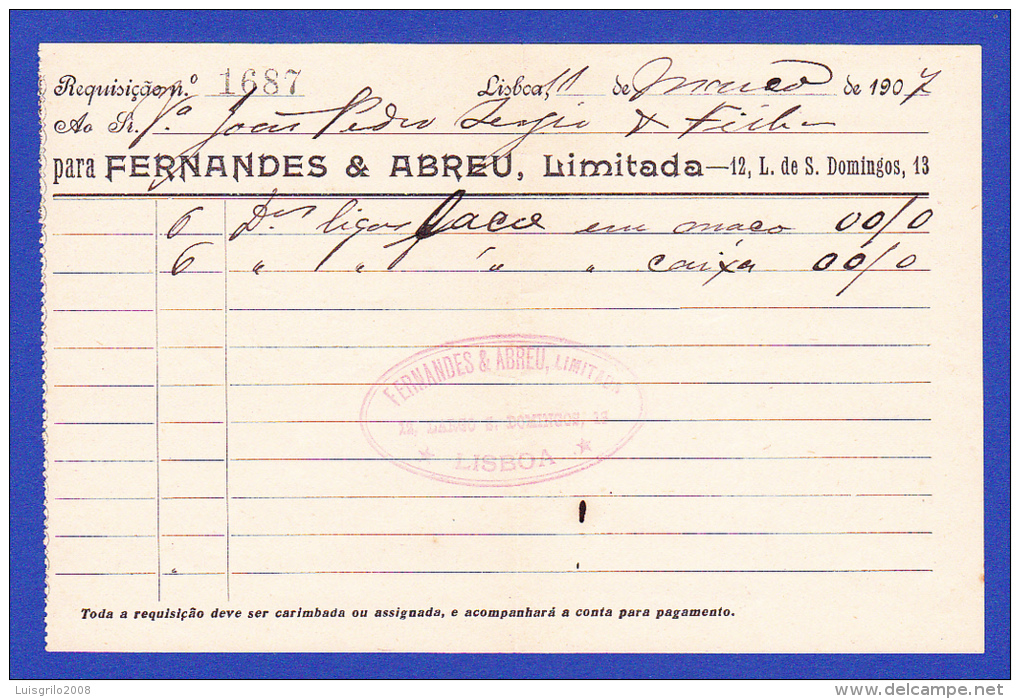 Requisição n.º 1687 Lisboa, 11 de Março de 1907
Ao Sr. Vª João Pedro Sergio & Filho
para FERNANDES & ABREU, Limitada—12, L. de S. Domingos, 13
6 Dᵃˢ ligas em maço 00/0
6 " " " " caixa 00/0
FERNANDES & ABREU, LIMITADA
12, LARGO S. DOMINGOS, 13
LISBOA
Toda a requisição deve ser carimbada ou assignada, e acompanhará a conta para pagamento.
Luisgrilo2008
delcampe.net